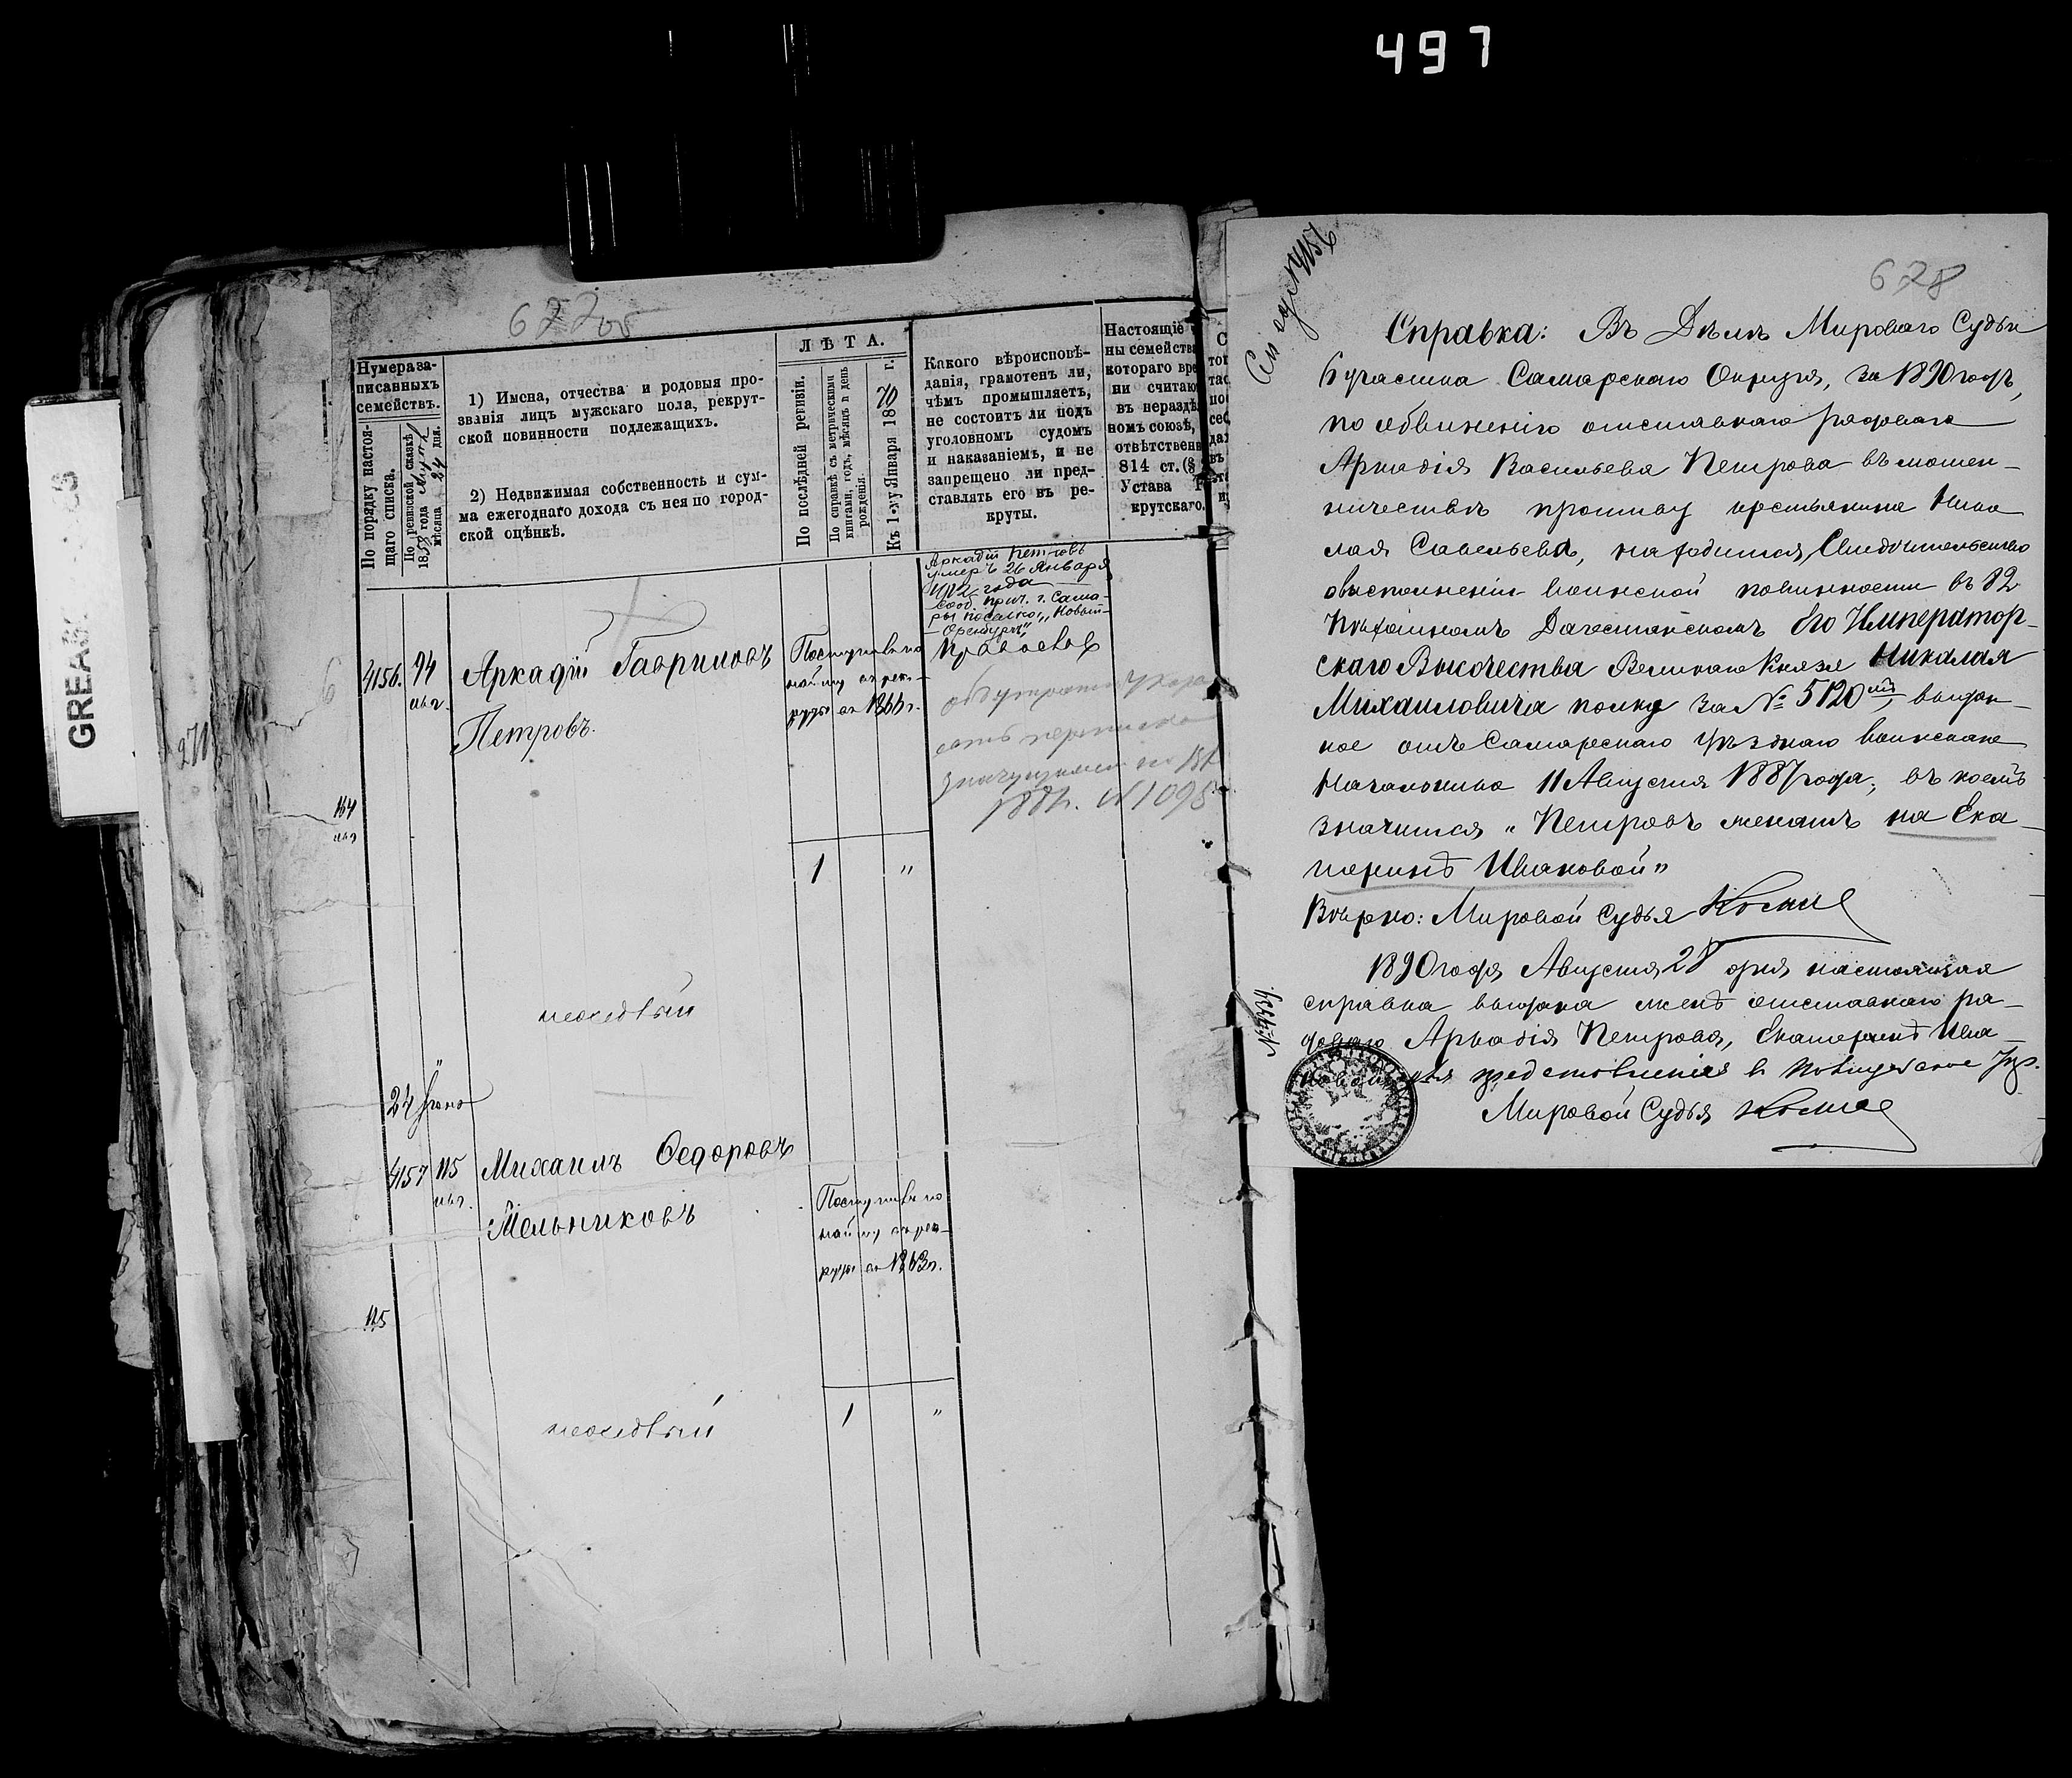 497
677 об
Нумера записанныхъ семействъ.
По порядку настоящаго списка.
По ревизской сказкѣ 1858 года мѣсяца 24 дня.
1) Имена, отчества и родовыя про-
званія лицъ мужскаго пола, рекрут-
ской повинности подлежащихъ.
2) Недвижимая собственность и сум-
ма ежегоднаго дохода съ нея по город-
ской оцѣнкѣ.
ЛѢТА.
По послѣдней ревизіи.
По справкѣ съ метрическими
книгами, годъ, мѣсяцъ и день
рожденія.
Къ 1-му Января 1870 г.
Какого вѣроисповѣ-
данія, грамотенъ ли,
чѣмъ промышляетъ,
не состоитъ ли подъ
уголовномъ судомъ
и наказаніемъ, и не
запрещено ли пред-
ставлять его въ ре-
круты.
Настоящіе
ны семейства
котораго вре
ни считаю
въ неразд
номъ союзѣ,
отвѣтствен
814 ст. (§
Устава
крутскаго.
Аркадій Петровъ
умеръ 26 Января
1912 года
сооб. прич. г. Сама-
ры поселка „Новый-
Оренбургъ"
4156. 94
Аркадій Гавриловъ
Петровъ.
Поступилъ по
найму въ рек-
руты въ 1866 г.
Православ
1881 г. № 1095
164
271
1 "
24
4157 115
Михаилъ Ѳедоровъ
Мельниковъ
Поступилъ по
найму въ рек-
руты въ 1863 г.
115
1 "
GREASE
678
См. № 4156
Справка: Въ Дѣлѣ Мироваго Судьи
6 участка Самарскаго Округа, за 1890 годъ,
по обвиненію отставнаго рядоваго
Аркадія Васильева Петрова въ мошен-
ничествѣ противу крестьянина Нико
лая Савельева, находится Свидѣтельство
о выполненіи воинской повинности въ 82
Пѣхотномъ Дагестанскомъ Его Император-
скаго Высочества Великаго Князя Николая
Михаиловича полку за № 5120мъ, выдан-
ное отъ Самарскаго Уѣзднаго Воинскаго
Начальника 11 Августа 1887 года, въ коемъ
значится „Петровъ женатъ на Ека-
теринѣ Ивановой"
Вѣрно: Мировой Судья
1890 года Августа 28 дня настоящая
справка выдана женѣ отставнаго ря-
доваго Аркадія Петрова, Екатеринѣ Ива-
новой для представленія въ Полицейское Упр.
Мировой Судья